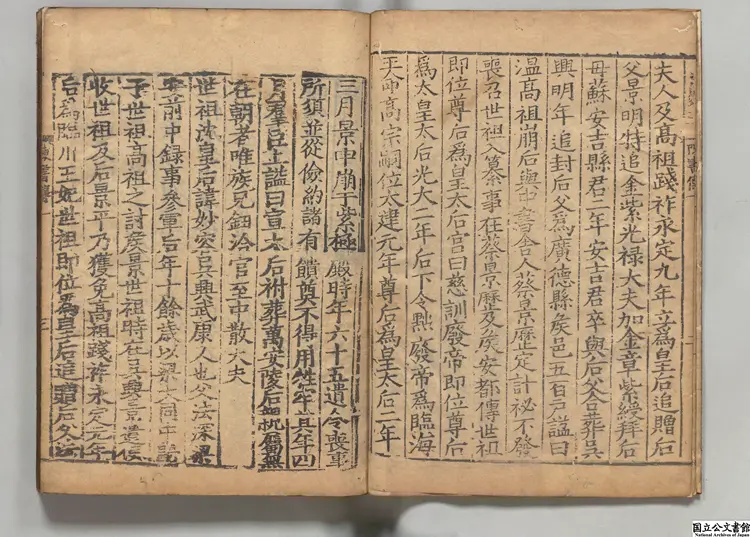 夫人及高祖踐祚永定九年立為皇后追贈后
父景明特追金紫光祿大夫加金章紫綬拜后
母蘇安吉縣君二年安吉君卒與后父合葬吳
興明年追封后父為廣德縣侯邑五百戶諡曰
溫高祖崩后與中書舍人蔡景歷定計祕不發
喪召世祖入纂事在蔡景歷及侯安都傳世祖
即位尊后為皇太后宮曰慈訓廢帝即位尊后
為太皇太后光大二年后下令黜廢帝為臨海
高宗嗣位太建元年尊后為皇太后二年
三月景申崩于紫極殿時年六十五遺令喪事
所須並從儉約諸有饋奠不得用牲牢其年四
月羣臣上謚曰宣太后祔葬萬安陵后親屬無
在朝者唯族兄鈕洽官至中散大夫
世祖沈皇后諱妙容吳興武康人也父法深梁
安前中録事參軍后年十餘歲以梁大同中歸
于世祖高祖之討侯景世祖時在吳興景遣使
收世祖及后景平乃獲免高祖踐祚永定元年
后為臨川王妃世祖即位為皇后追贈后父法
国立公文書館
National Archives of Japan